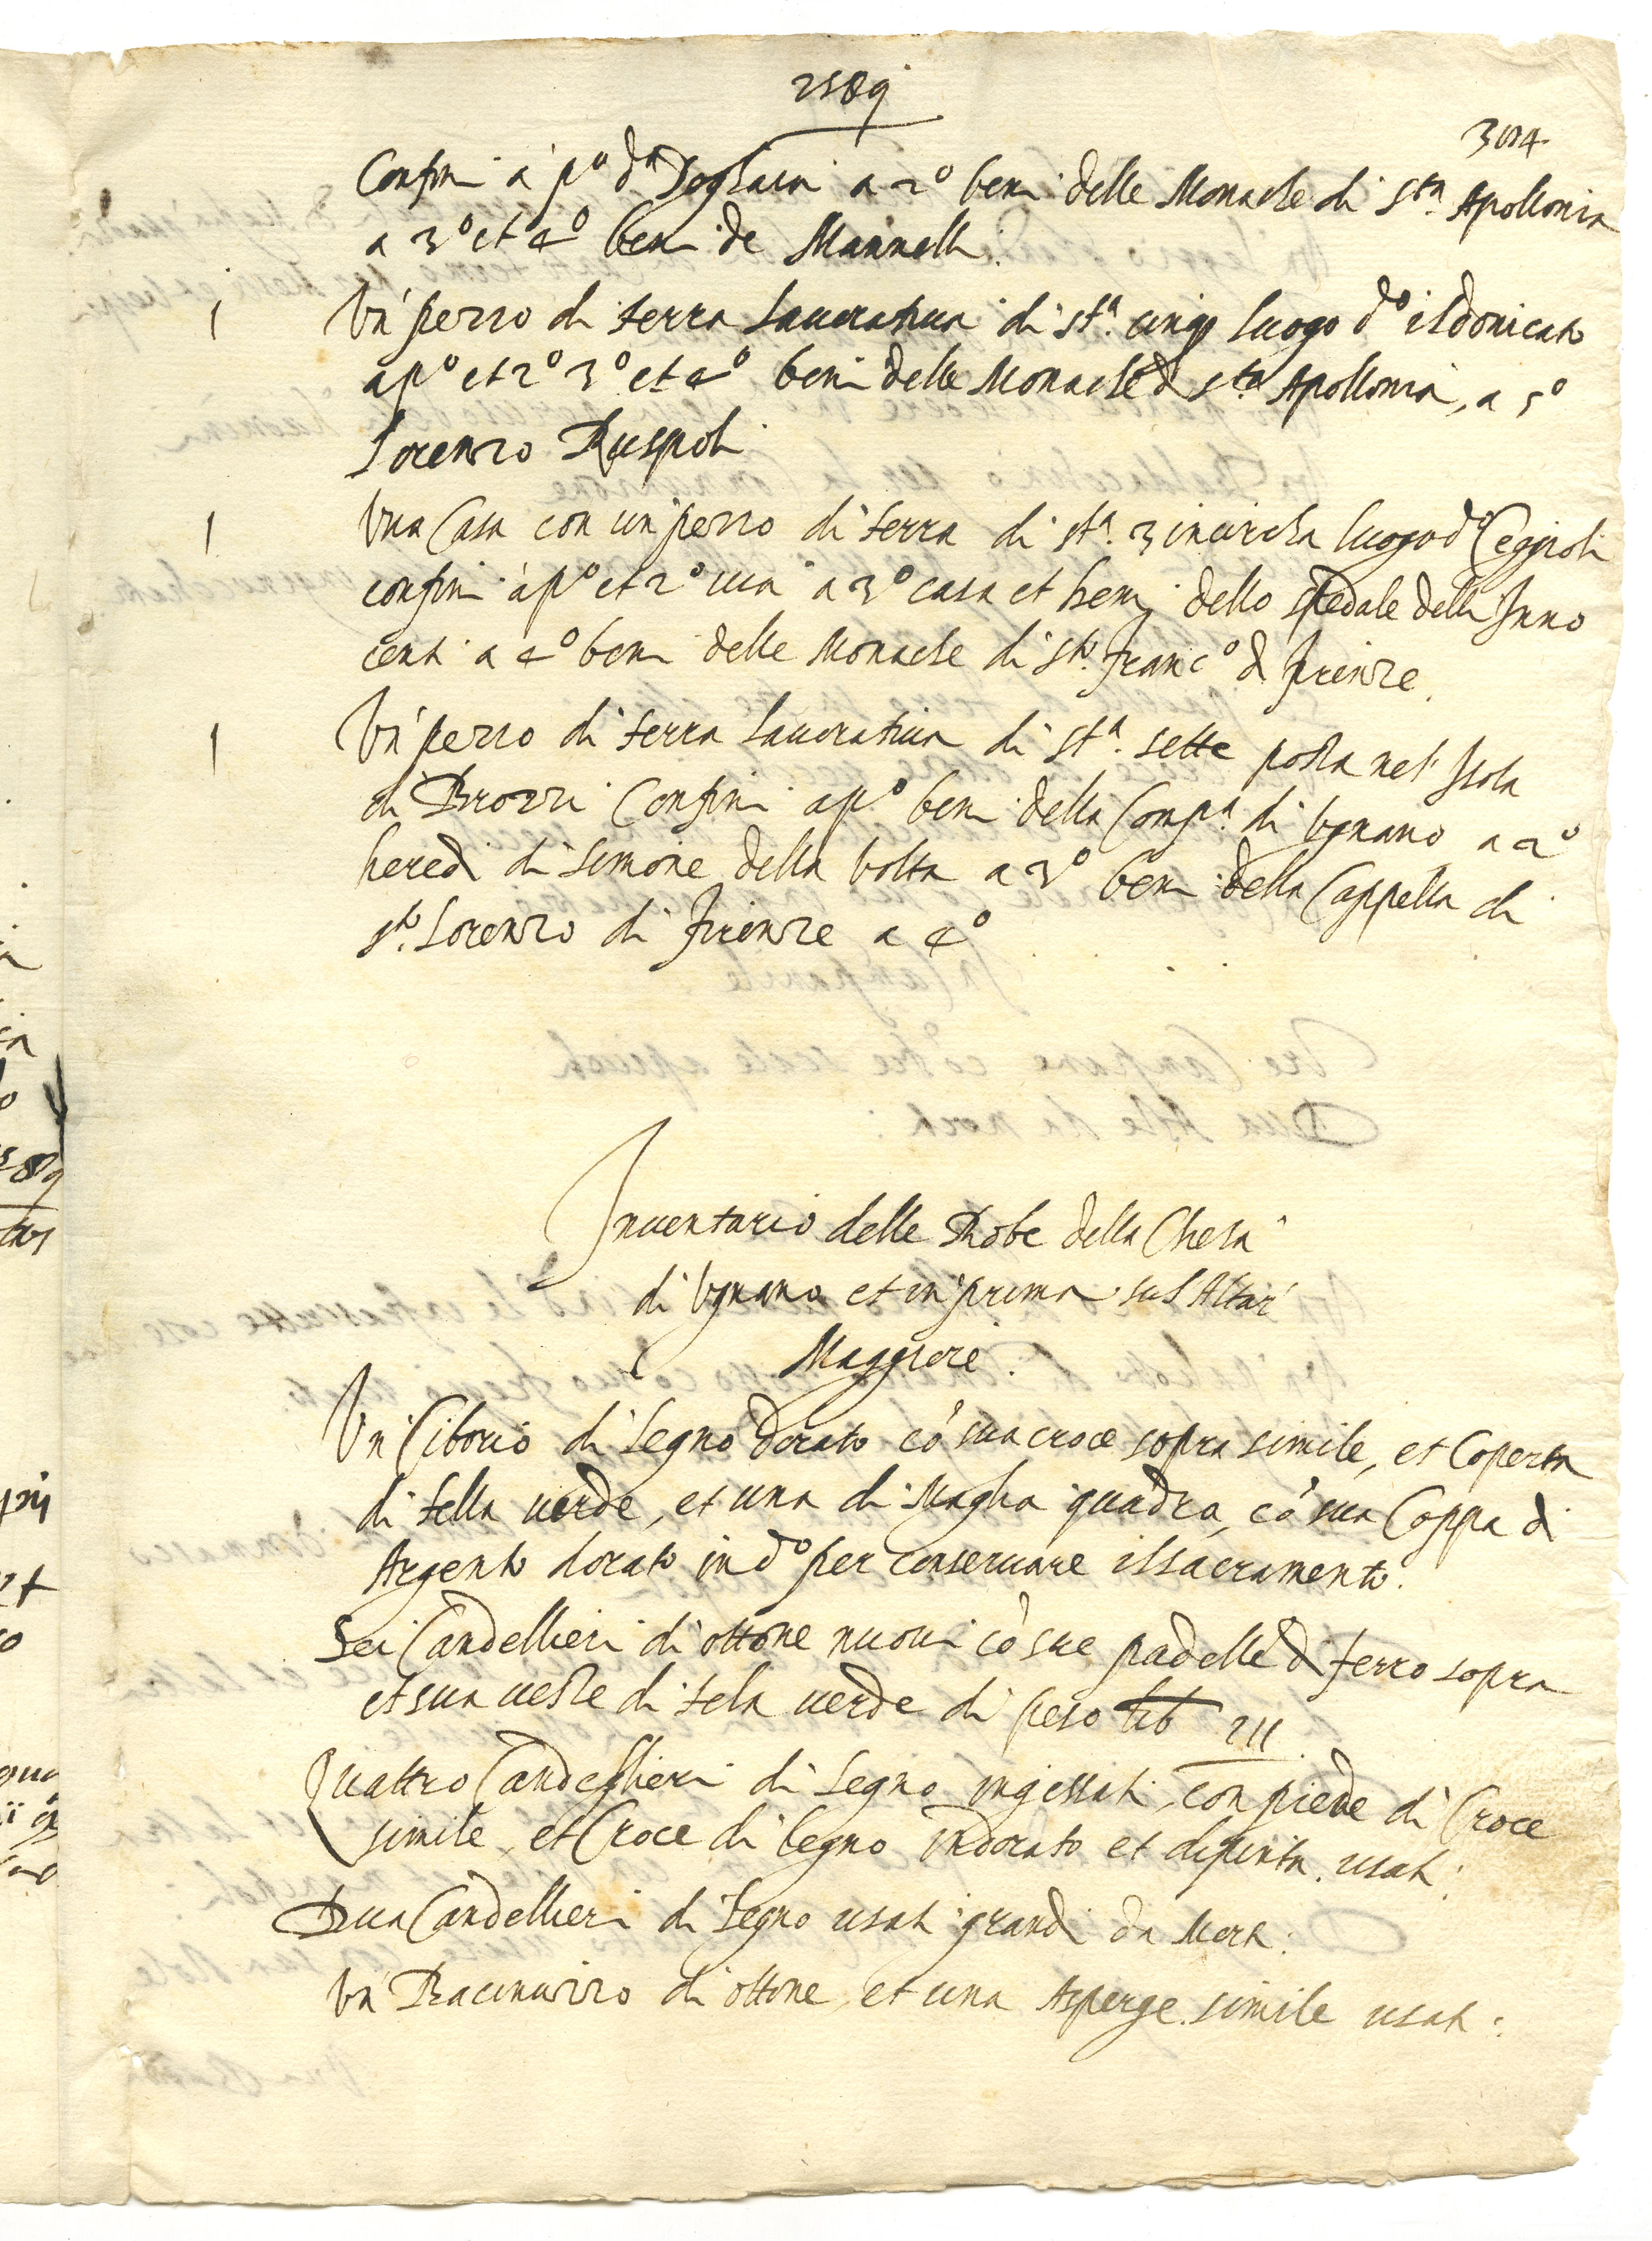 1589
304
Confini à p.º d.ª Doglaia a 2º beni delle Monache di S.ta Apollonia
a 3º et 4º beni de Mannelli.
1 Un' pezzo di terra lauoratiua di st.ª cinq luogo d.º il donicato
a p.º et 2º 3º et 4º beni delle Monache di S.ta Apollonia, a 5º
Lorenzo Ruspoli
1 Una Casa con un' pezzo di terra di st.ª 3 in circha luogo d.º
confini à p.º et 2º uia a 3º casa et beni dello spedale delli Inno
centi a 4º beni delle Monache di s.to Franc.º di Firenze.
1 Un' pezzo di terra lauoratiua di st.ª sette posta nel' Isola
di Brozzi Confini a p.º beni della Comp.ª di Ugnano a 2º
heredi di Simone della Volta a 3º beni della Cappella di
s.to Lorenzo di Firenze a 4º
Inuentario delle Robe della Chiesa
di Ugnano et in prima sul Altar'
Maggiore.
Un' Ciborio di legno dorato cō sua croce sopra simile, et Coperta
di tella uerde, et una di maglia quadra, cō sua Coppa di
Argento dorato in d.º per conseruare il Sacramento.
Sei Candellieri di ottone nuoui cō sue padelle di ferro sopra
et sua ueste di tela uerde di peso lib
Quattro Candeglieri di legno ingessati, con piede di Croce
simile, et Croce di legno indorato et dipinta usati.
Dua Candellieri di legno usati grandi da Morti.
Un' Bacinuzzo di ottone, et una Asperge simile usati.